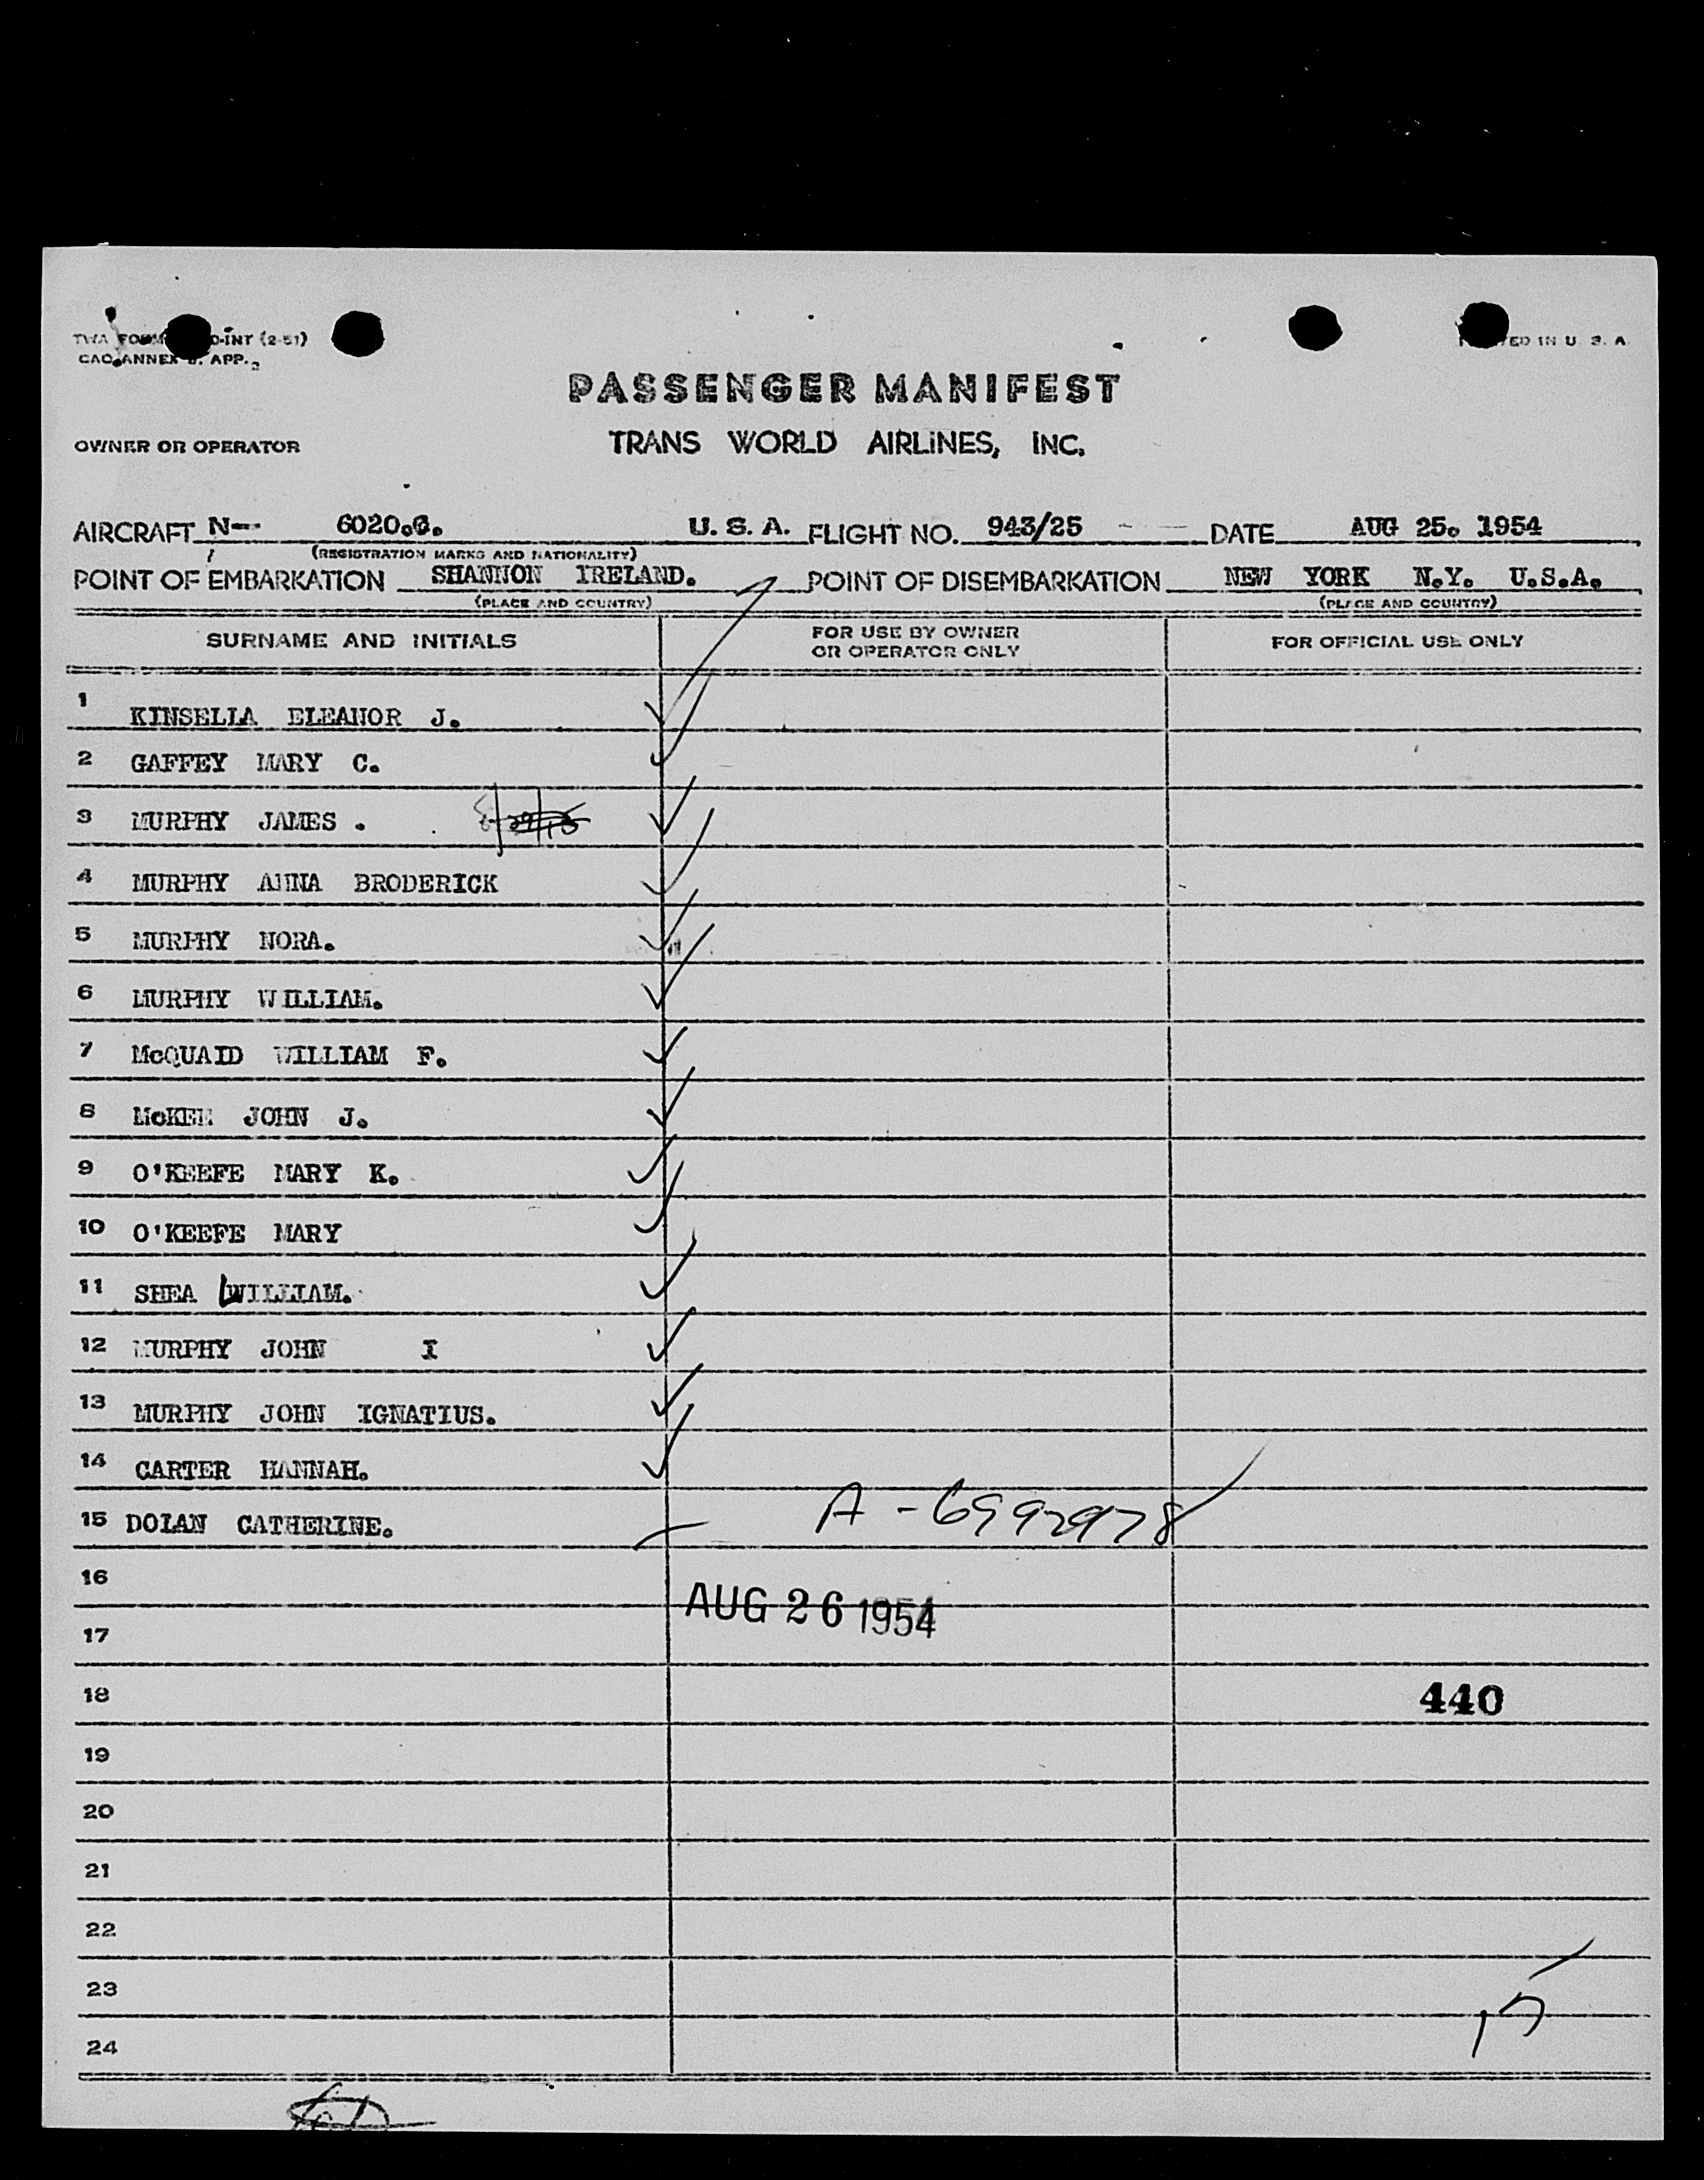 (2-51)
CAO ANNEX APP. 2
IN U. S. A.
PASSENGER MANIFEST
OWNER OR OPERATOR TRANS WORLD AIRLINES, INC.
AIRCRAFT N-- 6020.C. U. S. A. FLIGHT NO. 943/25 DATE AUG 25. 1954
(REGISTRATION MARKS AND NATIONALITY)
POINT OF EMBARKATION SHANNON IRELAND. POINT OF DISEMBARKATION NEW YORK N.Y. U.S.A.
(PLACE AND COUNTRY) (PLACE AND COUNTRY)
SURNAME AND INITIALS FOR USE BY OWNER OR OPERATOR ONLY FOR OFFICIAL USE ONLY
1 KINSELLA ELEANOR J.
2 GAFFEY MARY C.
3 MURPHY JAMES .
4 MURPHY ANNA BRODERICK
5 MURPHY NORA.
6 MURPHY WILLIAM.
7 McQUAID WILLIAM F.
8 McKEE JOHN J.
9 O'KEEFE MARY K.
10 O'KEEFE MARY
11 SHEA WILLIAM.
12 MURPHY JOHN I
13 MURPHY JOHN IGNATIUS.
14 CARTER HANNAH.
15 DOLAN CATHERINE. A-6992978
16
AUG 26 1954
17
18 440
19
20
21
22
23
15
24